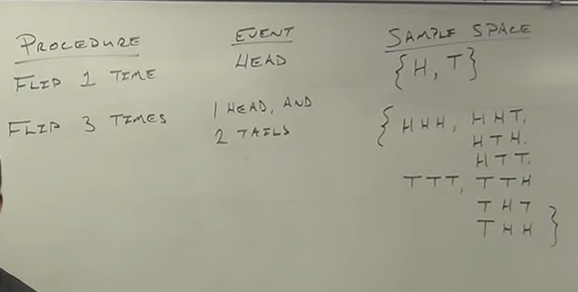 PROCEDURE EVENT SAMPLE SPACE
FLIP 1 TIME HEAD {H, T}
FLIP 3 TIMES 1 HEAD, AND
2 TAILS
{ HHH, HHT,
HTH,
HTT,
TTT, TTH
THT
THH }